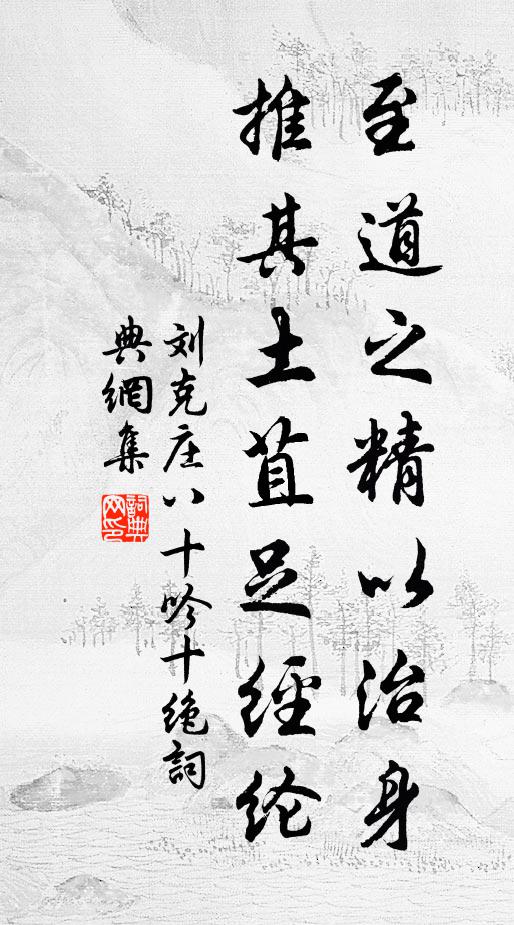 至道之精以治身
推其土苴足經纶
刘克庄八十吟十绝詞
典網集
詞典網印